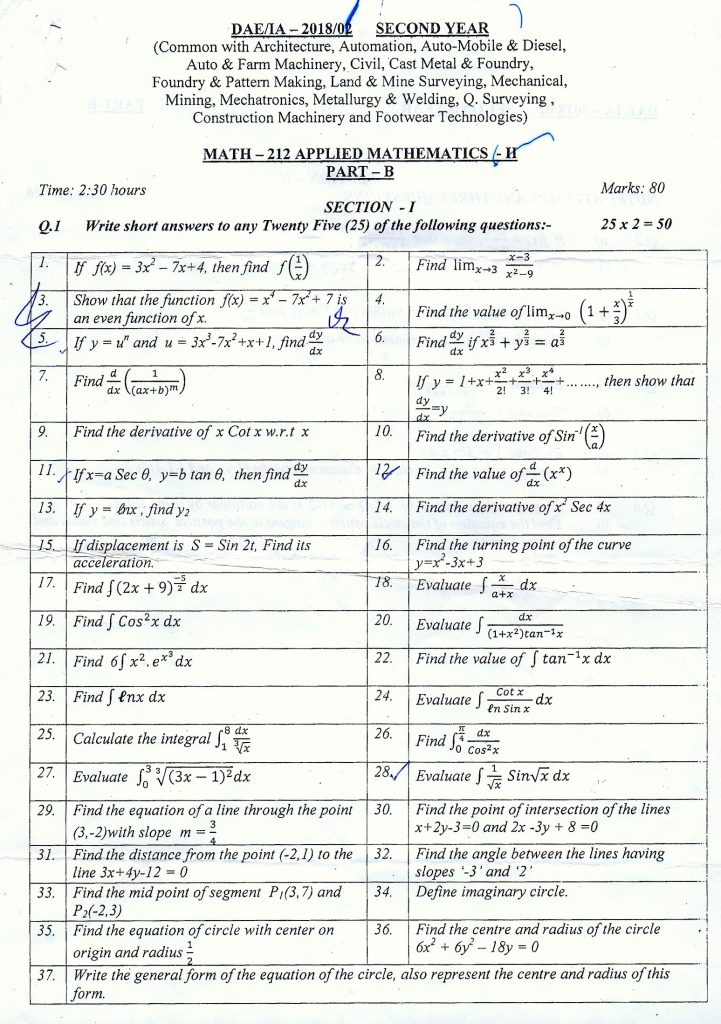 DAE/IA – 2018/02 SECOND YEAR
(Common with Architecture, Automation, Auto-Mobile & Diesel,
Auto & Farm Machinery, Civil, Cast Metal & Foundry,
Foundry & Pattern Making, Land & Mine Surveying, Mechanical,
Mining, Mechatronics, Metallurgy & Welding, Q. Surveying ,
Construction Machinery and Footwear Technologies)
MATH – 212 APPLIED MATHEMATICS - II
PART – B
Time: 2:30 hours Marks: 80
SECTION - I
Q.1 Write short answers to any Twenty Five (25) of the following questions:- 25 x 2 = 50
1. If f(x) = 3x² – 7x+4, then find f(1/x)
2. Find limₓ→₃ (x−3)/(x²−9)
3. Show that the function f(x) = x⁴ – 7x²+ 7 is
an even function of x.
4. Find the value of limₓ→₀ (1 + x/3)^(1/x)
5. If y = uⁿ and u = 3x³-7x²+x+1, find dy/dx
6. Find dy/dx if x^(2/3) + y^(2/3) = a^(2/3)
7. Find d/dx (1/(ax+b)ᵐ)
8. If y = 1+x+x²/2!+x³/3!+x⁴/4!+ ......., then show that
dy/dx=y
9. Find the derivative of x Cot x w.r.t x
10. Find the derivative of Sin⁻¹(x/a)
11. If x=a Sec θ, y=b tan θ, then find dy/dx
12. Find the value of d/dx (xˣ)
13. If y = ℓnx , find y₂
14. Find the derivative of x² Sec 4x
15. If displacement is S = Sin 2t, Find its
acceleration.
16. Find the turning point of the curve
y=x²-3x+3
17. Find ∫(2x + 9)^(−5/2) dx
18. Evaluate ∫ x/(a+x) dx
19. Find ∫ Cos²x dx
20. Evaluate ∫ dx/((1+x²)tan⁻¹x)
21. Find 6∫ x².e^(x³) dx
22. Find the value of ∫ tan⁻¹x dx
23. Find ∫ ℓnx dx
24. Evaluate ∫ Cot x/(ℓn Sin x) dx
25. Calculate the integral ∫₁⁸ dx/∛x
26. Find ∫₀^(π/4) dx/Cos²x
27. Evaluate ∫₀³ ∛(3x − 1)²dx
28. Evaluate ∫ 1/√x Sin√x dx
29. Find the equation of a line through the point
(3,-2)with slope m = 3/4
30. Find the point of intersection of the lines
x+2y-3=0 and 2x -3y + 8 =0
31. Find the distance from the point (-2,1) to the
line 3x+4y-12 = 0
32. Find the angle between the lines having
slopes ‘-3’ and ‘2’
33. Find the mid point of segment P₁(3,7) and
P₂(-2,3)
34. Define imaginary circle.
35. Find the equation of circle with center on
origin and radius 1/2
36. Find the centre and radius of the circle
6x² + 6y² – 18y = 0
37. Write the general form of the equation of the circle, also represent the centre and radius of this
form.